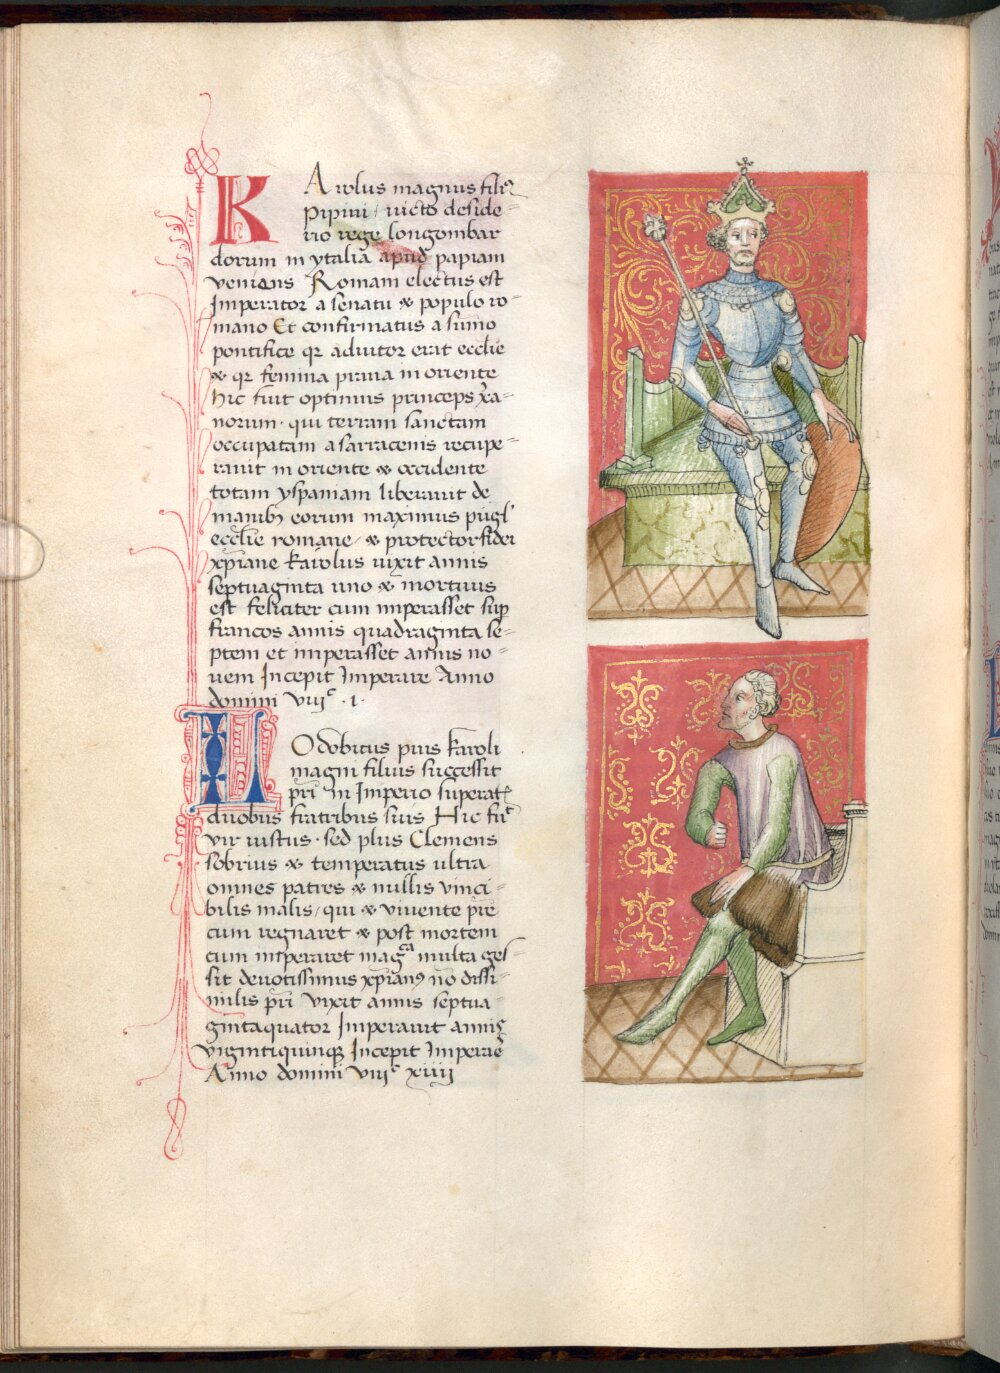 KArolus magnus filiꝰ
pipini / victo deside-
rio rege longombar
dorum in ytalia apud papiam
veniens Romam electus est
Imperator a senatu & populo ro-
mano Et confirmatus a sumo
pontifice qr adiutor erat ecclie
& qr femina praua in oriente
hic fuit optimus princeps xa-
norum · qui terram sanctam
occupatam a sarracenis recupe-
rauit in oriente & occidente
totam yspaniam liberauit de
manibꝫ eorum maximus pugl'
ecclie romane / & protector fidei
xpiane karolus vixit annis
septuaginta uno & mortuus
est feliciter cum imperasset sup
francos annis quadraginta se-
ptem et imperasset annis no-
uem Incepit Imperare Anno
domini viijᶜ · i ·
Lodobicus pius karoli
magni filius successit
pri in Imperio superatꝭ
duobus fratribus suis Hic fuᵗ
vir iustus · sed plus Clemens
sobrius & temperatus ultra
omnes patres & nullis vinci-
bilis malis / qui & viuente pre
cum regnaret & post mortem
cum imperaret magᵃ multa ges-
sit deuotissimus xpianꝰ nō dissi-
milis pri vixit annis septua-
gintaquator Imperauit annis
vigintiquinqꝫ Incepit Imperare
Anno domini viijᶜ xiiij